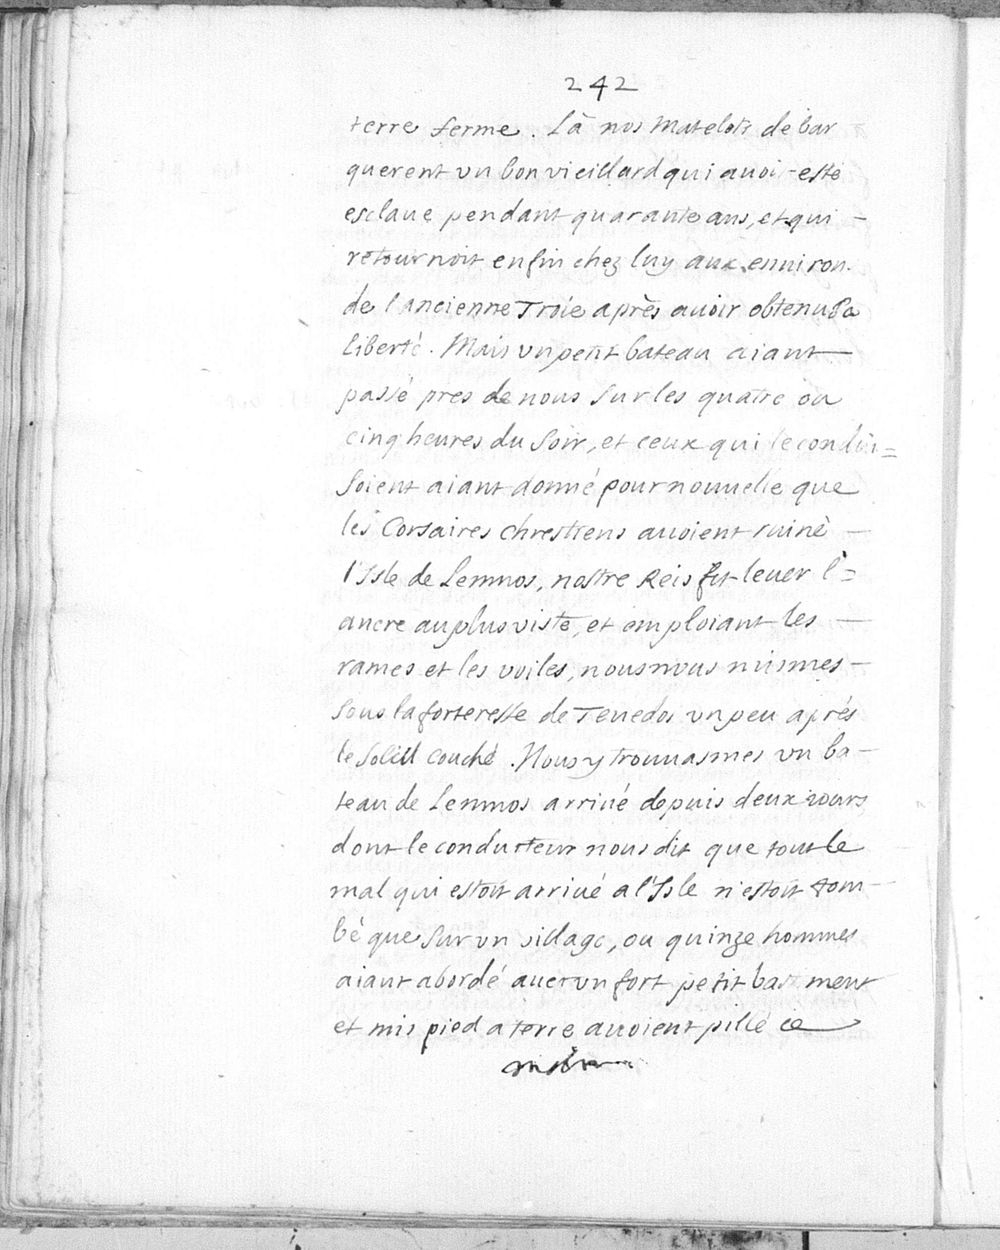 242
terre ferme. Là nos Matelots débar
querent vn bon vieillard qui auoit esté
esclaue pendant quarante ans, et qui –
retournoit enfin chez luy aux enuiron
de l'ancienne Troie après auoir obtenu sa
liberté. Mais vn petit bateau aiant –
passé pres de nous sur les quatre ou
cinq heures du soir, et ceux qui le condui=
soient aiant donné pour nouuelle que
les Corsaires chrestiens auoient ruiné –
l'Isle de Lemnos, nostre Reis fit leuer l'=
ancre au plus viste, et emploiant les –
rames et les voiles, nous nous mismes –
sous la forteresse de Tenedos vn peu aprés
le Soleil couché. Nous y trouuasmes vn ba–
teau de Lemnos arriué depuis deux iours
dont le conducteur nous dit que tout le
mal qui estoit arriué a l'Isle n'estoit tom–
bé que sur vn village, ou quinze hommes
aiant abordé auec vn fort petit bastiment
et mis pied a terre auoient pillé ce